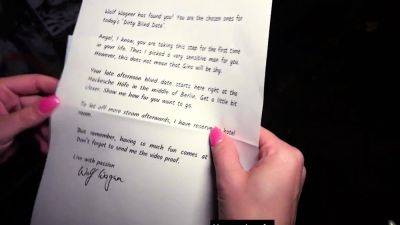 Wolf Wagner has found you! You are the chosen ones for
today's "Dirty Blind Date".
Angel, I know, you are taking this step for the first time
in your life. Thus I picked a very sensitive man for you.
However, this does not mean that Gino will be shy.
Your late afternoon blind date starts here right at the
Hackesche Höfe in the middle of Berlin. Get a little bit
closer. Show me how far you want to go.
To let off more steam afterwards, I have reserved hotel
room.
But remember, having so much fun comes at
Don't forget to send me the video proof.
Live with passion
Wolf Wagner